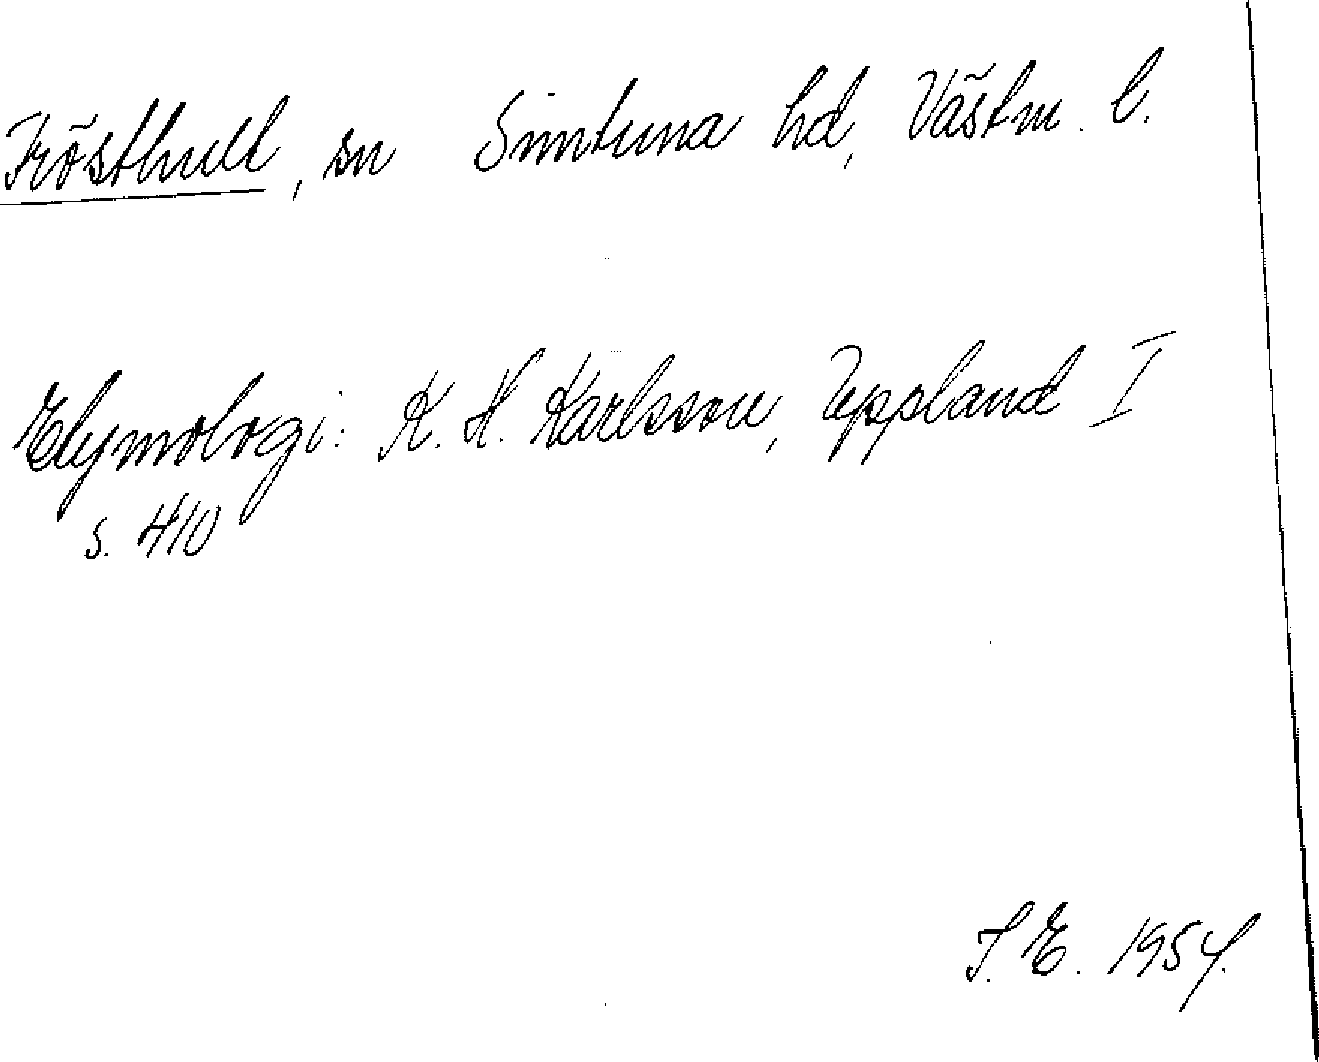 Frösthult, sn Simtuna hd, Västm. l.
Etymologi: K. H. Karlsson, Uppland I
s. 410
I. E. 1954.